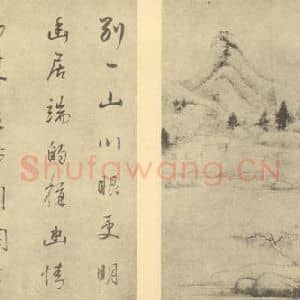 別一山川眼更明
幽居端的稱幽情
Shufawang.CN